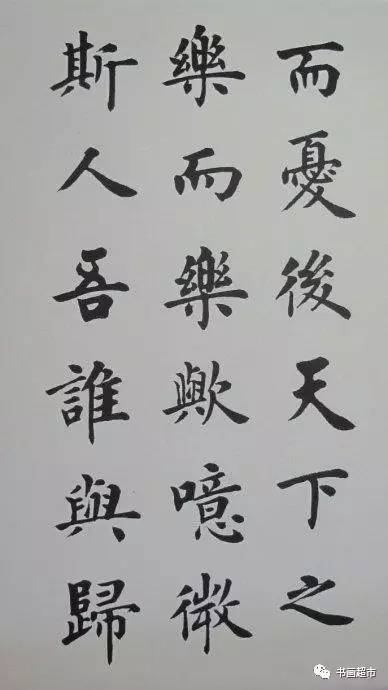 而憂後天下之
樂而樂歟噫微
斯人吾誰與歸
书画超市